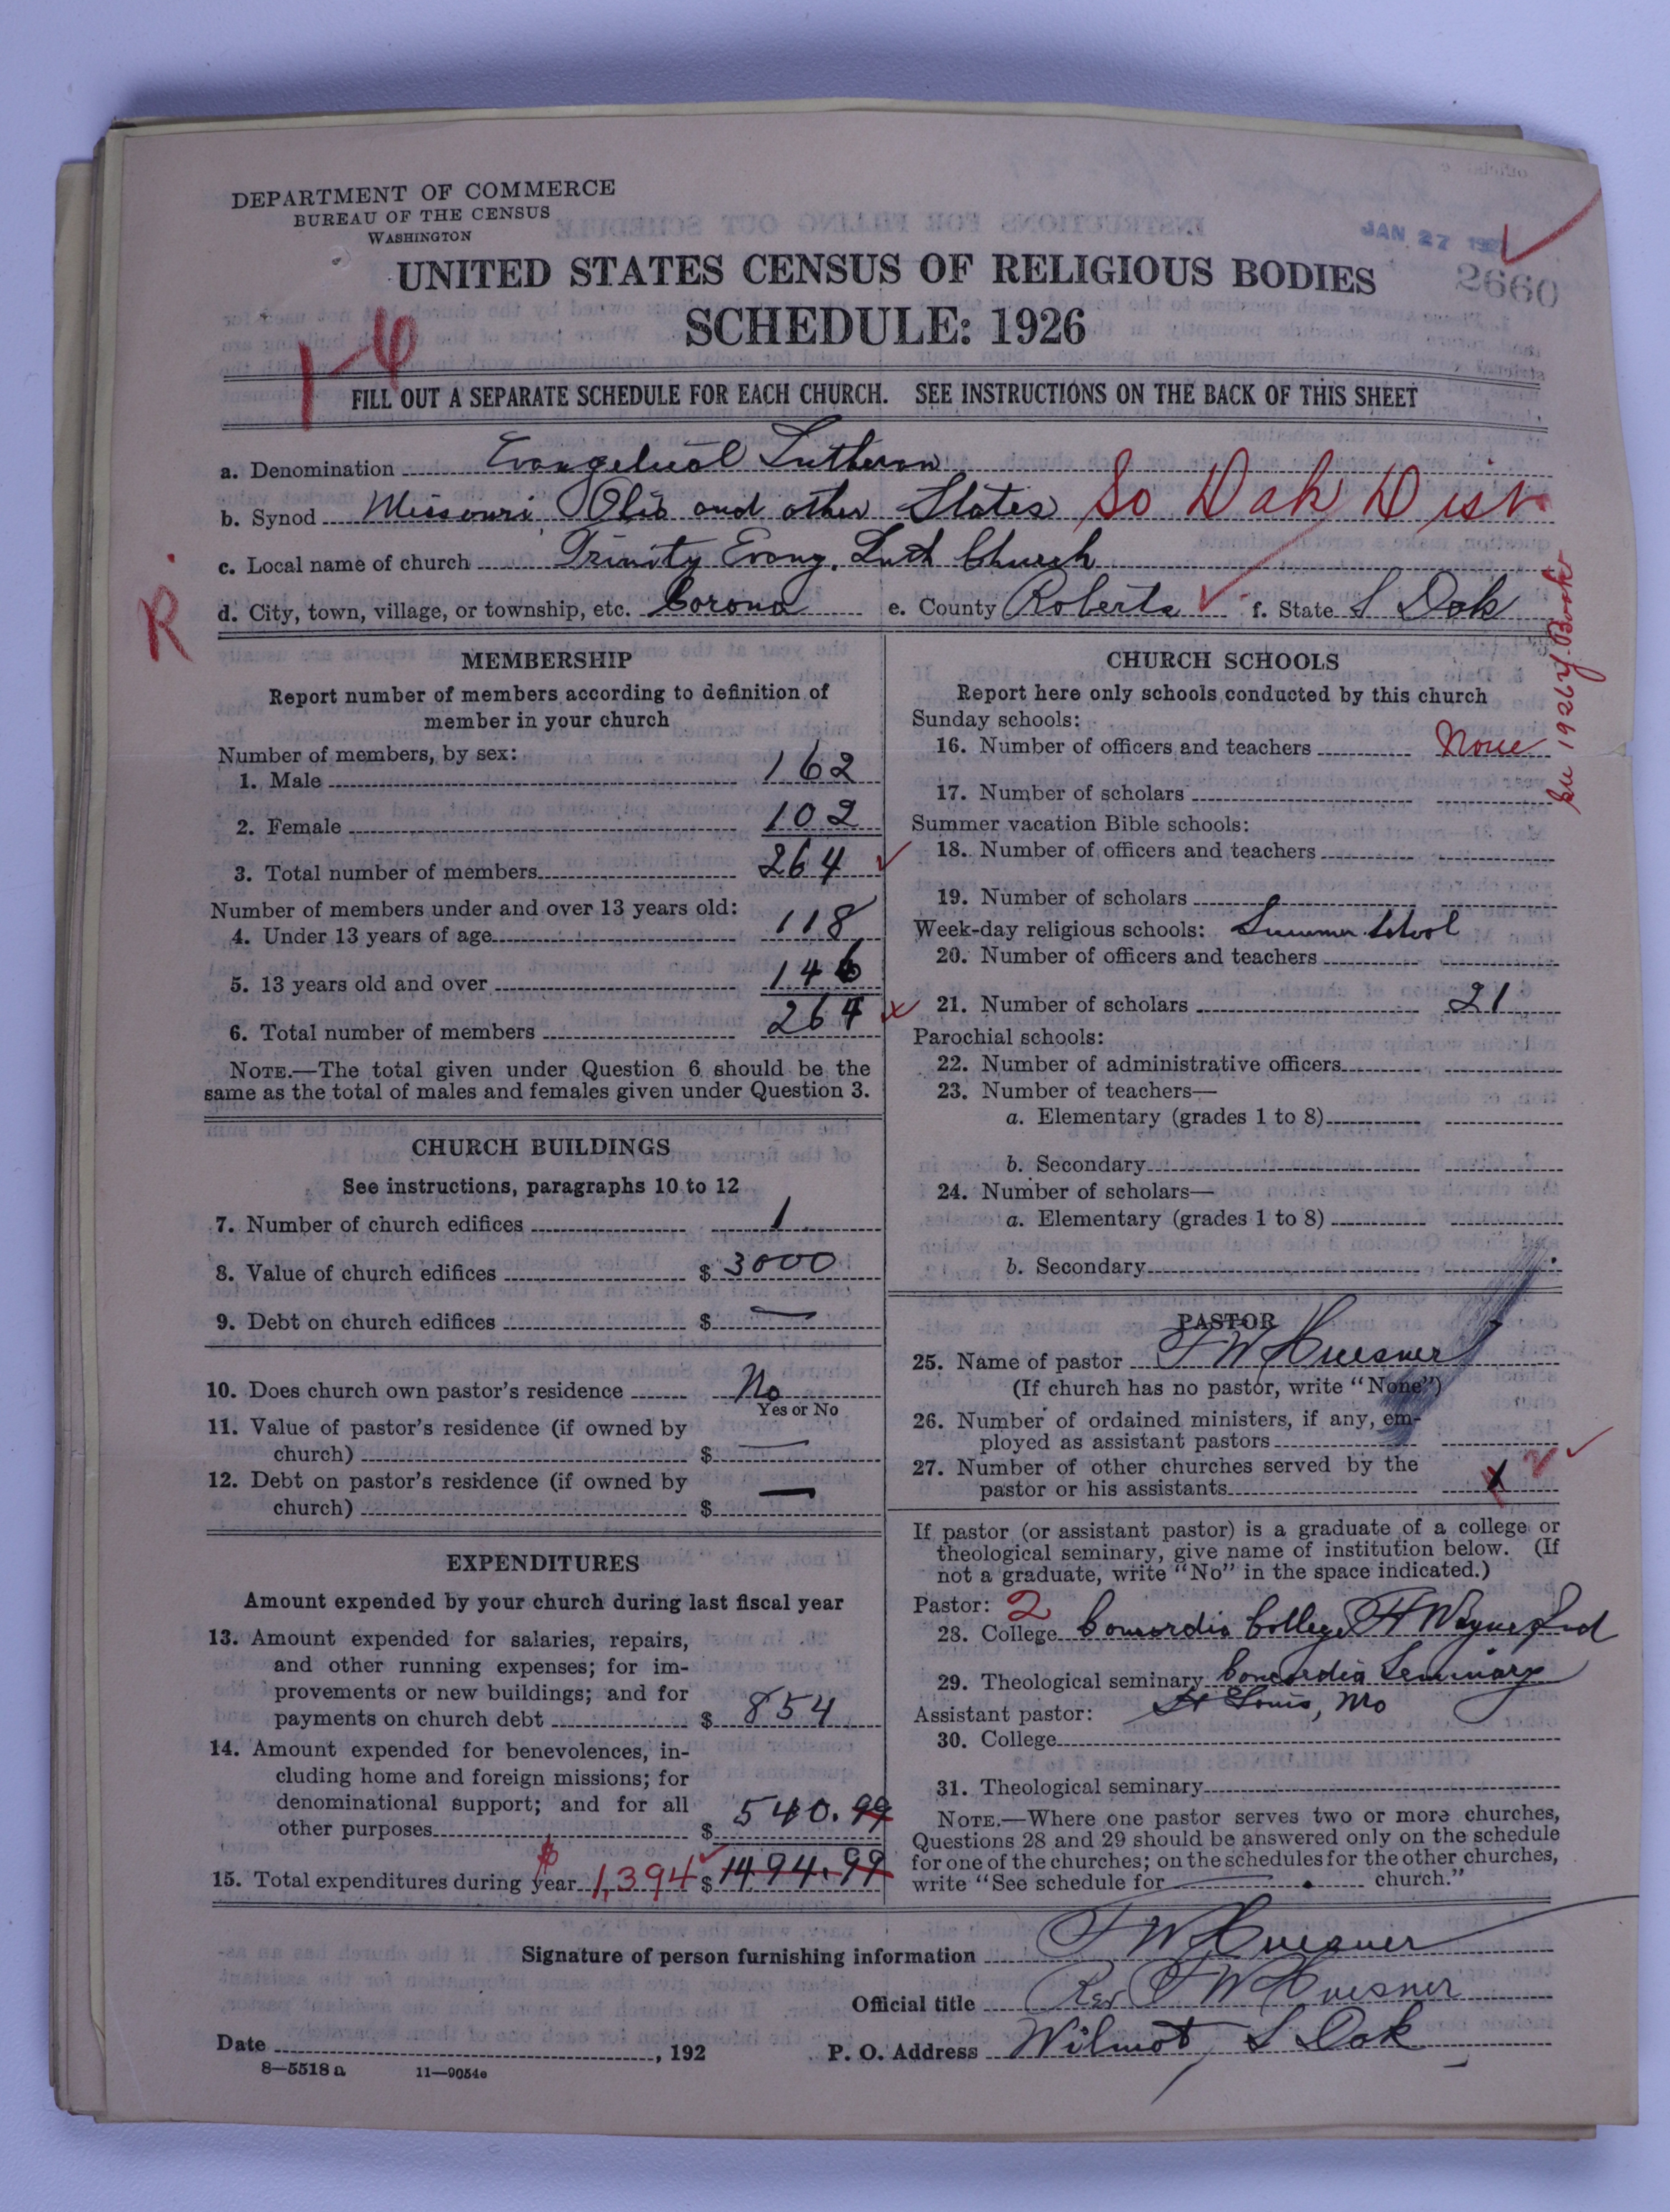 DEPARTMENT OF COMMERCE
BUREAU OF THE CENSUS
WASHINGTON
JAN 27 192
2660
UNITED STATES CENSUS OF RELIGIOUS BODIES
SCHEDULE: 1926
1-6
FILL OUT A SEPARATE SCHEDULE FOR EACH CHURCH. SEE INSTRUCTIONS ON THE BACK OF THIS SHEET
a. Denomination Evangelical Lutheran
b. Synod Missouri, Ohio and other States So Dak Dist
c. Local name of church Trinity Evang. Luth Church
d. City, town, village, or township, etc. Corona e. County Roberts f. State S Dak
R.
1926 Y. Book
MEMBERSHIP
Report number of members according to definition of
member in your church
Number of members, by sex:
1. Male 162
2. Female 102
3. Total number of members 264
Number of members under and over 13 years old:
4. Under 13 years of age 118
5. 13 years old and over 146
6. Total number of members 264
NOTE.—The total given under Question 6 should be the
same as the total of males and females given under Question 3.
CHURCH BUILDINGS
See instructions, paragraphs 10 to 12
7. Number of church edifices 1
8. Value of church edifices $ 3000
9. Debt on church edifices $ —
10. Does church own pastor's residence No
Yes or No
11. Value of pastor's residence (if owned by
church) $ —
12. Debt on pastor's residence (if owned by
church) $ —
EXPENDITURES
Amount expended by your church during last fiscal year
13. Amount expended for salaries, repairs,
and other running expenses; for im-
provements or new buildings; and for
payments on church debt $ 854
14. Amount expended for benevolences, in-
cluding home and foreign missions; for
denominational support; and for all
other purposes $ 540.99
15. Total expenditures during year $ 1,394 $ 1494.99
CHURCH SCHOOLS
Report here only schools conducted by this church
Sunday schools:
16. Number of officers and teachers None
17. Number of scholars
Summer vacation Bible schools:
18. Number of officers and teachers
19. Number of scholars
Week-day religious schools: Summer school
20. Number of officers and teachers
21. Number of scholars 21
Parochial schools:
22. Number of administrative officers
23. Number of teachers—
a. Elementary (grades 1 to 8)
b. Secondary
24. Number of scholars—
a. Elementary (grades 1 to 8)
b. Secondary
PASTOR
25. Name of pastor F W Huesner
(If church has no pastor, write "None")
26. Number of ordained ministers, if any, em-
ployed as assistant pastors
27. Number of other churches served by the
pastor or his assistants
If pastor (or assistant pastor) is a graduate of a college or
theological seminary, give name of institution below. (If
not a graduate, write "No" in the space indicated.)
Pastor: 2
28. College Concordia College Ft Wayne Ind
29. Theological seminary Concordia Seminary
St Louis, Mo
Assistant pastor:
30. College
31. Theological seminary
NOTE.—Where one pastor serves two or more churches,
Questions 28 and 29 should be answered only on the schedule
for one of the churches; on the schedules for the other churches,
write "See schedule for church."
Signature of person furnishing information F W Huesner
Official title Rev F W Huesner
Date , 192 P. O. Address Wilmot, S Dak
8—5518 a 11—9054e